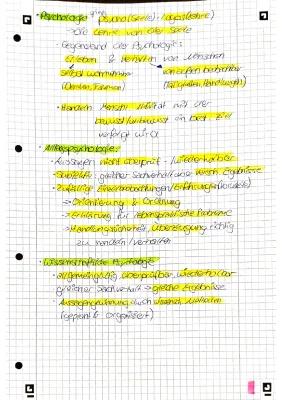 Psychologie griech. psycho (Seele); logos (Lehre)
→ Die Lehre von der Seele
• Gegenstand der Psychologie:
Erleben & Verhalten von Menschen
selbst wahrnehmbar von außen beobachtbar
(Denken, Träumen) (Handlungen)
• Handeln: Mensch mit der
bewusst/unbewusst ein best. Ziel
verfolgt wird
Alltagspsychologie:
• Aussagen nicht überprüf-/wiederholbar
• Subjektiv: gleicher Sachverhalt versch. Ergebnisse
• Zufällige Einzelbeobachtungen/Erfahrung
→ Orientierung & Ordnung
→ Erklärung für lebenspraktische Probleme
→ Handlungssicherheit, Überzeugung richtig
zu handeln/verhalten
Wissenschaftliche Psychologie
• allgemeingültig überprüfbar, wiederholbar
gleicher Sachverhalt → gleiche Ergebnisse
• Aussagengewinnung durch wissensch. Methoden
(geplant & organisiert)